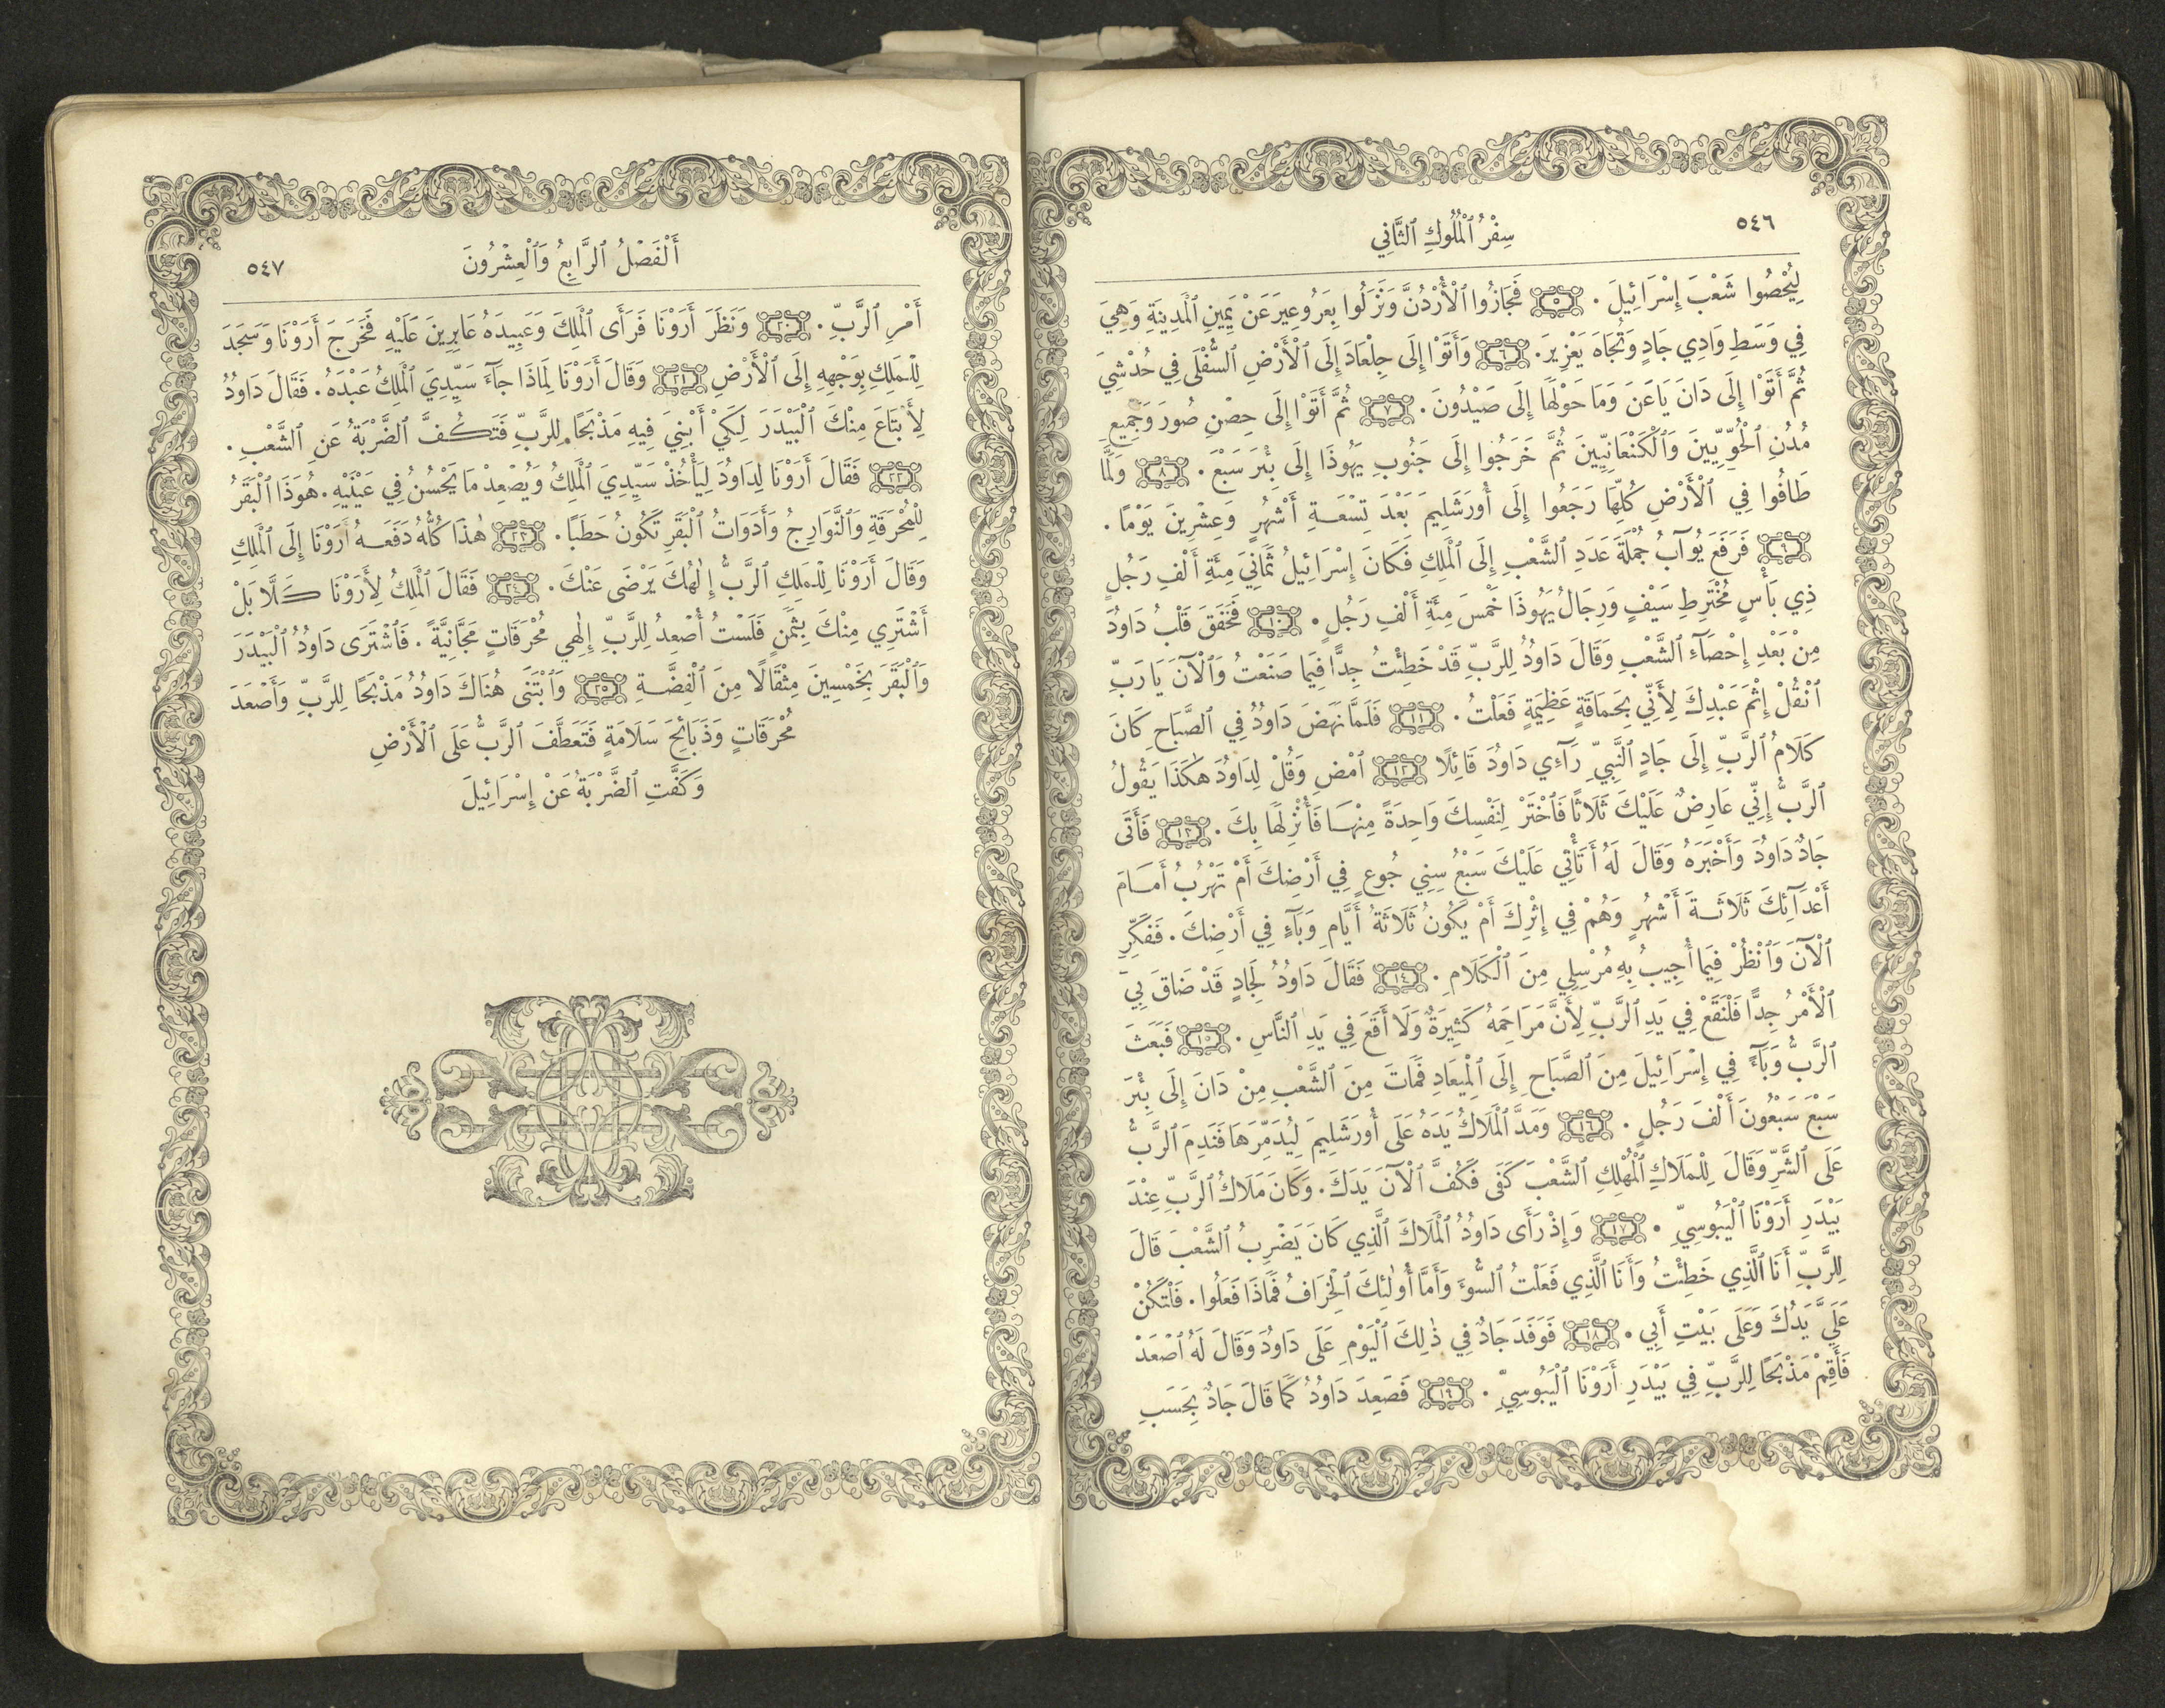 ٥٤٦
سِفْرُ ٱلْمُلُوكِ ٱلثَّانِي
لِيُحْصُوا شَعْبَ إِسْرَائِيلَ . ٥ فَجَازُوا ٱلْأُرْدُنَّ وَنَزَلُوا بِعَرُوعِيرَ عَنْ يَمِينِ ٱلْمَدِينَةِ وَهِيَ
فِي وَسَطِ وَادِي جَادٍ وَتُجَاهَ يَعْزِيرَ. ٦ وَأَتَوْا إِلَى جِلْعَادَ إِلَى ٱلْأَرْضِ ٱلسُّفْلَى فِي حُدْشِيَ
ثُمَّ أَتَوْا إِلَى دَانَ يَاعَنَ وَمَا حَوْلَهَا إِلَى صَيْدُونَ . ٧ ثُمَّ أَتَوْا إِلَى حِصْنِ صُورَ وَجَمِيعِ
مُدُنِ ٱلْحُوِّيِّينَ وَٱلْكَنْعَانِيِّينَ ثُمَّ خَرَجُوا إِلَى جَنُوبِ يَهُوذَا إِلَى بِئْرَ سَبْعَ . ٨ وَلَمَّا
طَافُوا فِي ٱلْأَرْضِ كُلِّهَا رَجَعُوا إِلَى أُورَشَلِيمَ بَعْدَ تِسْعَةِ أَشْهُرٍ وَعِشْرِينَ يَوْمًا .
٩ فَرَفَعَ يُوآبُ جُمْلَةَ عَدَدِ ٱلشَّعْبِ إِلَى ٱلْمَلِكِ فَكَانَ إِسْرَائِيلُ ثَمَانِيَ مِئَةِ أَلْفِ رَجُلٍ
ذِي بَأْسٍ مُخْتَرِطِ سَيْفٍ وَرِجَالُ يَهُوذَا خَمْسَ مِئَةِ أَلْفِ رَجُلٍ . ١٠ فَخَفَقَ قَلْبُ دَاوُدَ
مِنْ بَعْدِ إِحْصَآءِ ٱلشَّعْبِ وَقَالَ دَاوُدُ لِلرَّبِّ قَدْ خَطِئْتُ جِدًّا فِيمَا صَنَعْتُ وَٱلْآنَ يَا رَبِّ
ٱنْقُلْ إِثْمَ عَبْدِكَ لِأَنِّي بِحَمَاقَةٍ عَظِيمَةٍ فَعَلْتُ . ١١ فَلَمَّا نَهَضَ دَاوُدُ فِي ٱلصَّبَاحِ كَانَ
كَلَامُ ٱلرَّبِّ إِلَى جَادٍ ٱلنَّبِيِّ رَآءِي دَاوُدَ قَائِلًا ١٢ ٱمْضِ وَقُلْ لِدَاوُدَ هٰكَذَا يَقُولُ
ٱلرَّبُّ إِنِّي عَارِضٌ عَلَيْكَ ثَلَاثًا فَٱخْتَرْ لِنَفْسِكَ وَاحِدَةً مِنْهَا فَأُنْزِلَهَا بِكَ . ١٣ فَأَتَى
جَادٌ دَاوُدَ وَأَخْبَرَهُ وَقَالَ لَهُ أَتَأْتِي عَلَيْكَ سَبْعُ سِنِي جُوعٍ فِي أَرْضِكَ أَمْ تَهْرُبُ أَمَامَ
أَعْدَآئِكَ ثَلَاثَةَ أَشْهُرٍ وَهُمْ فِي إِثْرِكَ أَمْ يَكُونُ ثَلَاثَةُ أَيَّامِ وَبَآءٍ فِي أَرْضِكَ . فَفَكِّرِ
ٱلْآنَ وَٱنْظُرْ فِيمَا أُجِيبُ بِهِ مُرْسِلِي مِنَ ٱلْكَلَامِ . ١٤ فَقَالَ دَاوُدُ لِجَادٍ قَدْ ضَاقَ بِيَ
ٱلْأَمْرُ جِدًّا فَلْنَقَعْ فِي يَدِ ٱلرَّبِّ لِأَنَّ مَرَاحِمَهُ كَثِيرَةٌ وَلَا أَقَعَ فِي يَدِ ٱلنَّاسِ . ١٥ فَبَعَثَ
ٱلرَّبُّ وَبَآءً فِي إِسْرَائِيلَ مِنَ ٱلصَّبَاحِ إِلَى ٱلْمِيعَادِ فَمَاتَ مِنَ ٱلشَّعْبِ مِنْ دَانَ إِلَى بِئْرَ
سَبْعَ سَبْعُونَ أَلْفَ رَجُلٍ . ١٦ وَمَدَّ ٱلْمَلَاكُ يَدَهُ عَلَى أُورَشَلِيمَ لِيُدَمِّرَهَا فَنَدِمَ ٱلرَّبُّ
عَلَى ٱلشَّرِّ وَقَالَ لِلْمَلَاكِ ٱلْمُهْلِكِ ٱلشَّعْبَ كَفَى فَكُفَّ ٱلْآنَ يَدَكَ . وَكَانَ مَلَاكُ ٱلرَّبِّ عِنْدَ
بَيْدَرِ أَرَوْنَا ٱلْيَبُوسِيِّ . ١٧ وَإِذْ رَأَى دَاوُدُ ٱلْمَلَاكَ ٱلَّذِي كَانَ يَضْرِبُ ٱلشَّعْبَ قَالَ
لِلرَّبِّ أَنَا ٱلَّذِي خَطِئْتُ وَأَنَا ٱلَّذِي فَعَلْتُ ٱلسُّوءَ وَأَمَّا أُولٰئِكَ ٱلْخِرَافُ فَمَاذَا فَعَلُوا . فَلْتَكُنْ
عَلَيَّ يَدُكَ وَعَلَى بَيْتِ أَبِي . ١٨ فَوَفَدَ جَادٌ فِي ذٰلِكَ ٱلْيَوْمِ عَلَى دَاوُدَ وَقَالَ لَهُ ٱصْعَدْ
فَأَقِمْ مَذْبَحًا لِلرَّبِّ فِي بَيْدَرِ أَرَوْنَا ٱلْيَبُوسِيِّ . ١٩ فَصَعِدَ دَاوُدُ كَمَا قَالَ جَادٌ بِحَسَبِ
أَلْفَصْلُ ٱلرَّابِعُ وَٱلْعِشْرُونَ
٥٤٧
أَمْرِ ٱلرَّبِّ . ٢٠ وَنَظَرَ أَرَوْنَا فَرَأَى ٱلْمَلِكَ وَعَبِيدَهُ عَابِرِينَ عَلَيْهِ فَخَرَجَ أَرَوْنَا وَسَجَدَ
لِلْمَلِكِ بِوَجْهِهِ إِلَى ٱلْأَرْضِ ٢١ وَقَالَ أَرَوْنَا لِمَاذَا جَآءَ سَيِّدِيَ ٱلْمَلِكُ عَبْدَهُ . فَقَالَ دَاوُدُ
لِأَبْتَاعَ مِنْكَ ٱلْبَيْدَرَ لِكَيْ أَبْنِيَ فِيهِ مَذْبَحًا لِلرَّبِّ فَتَكُفَّ ٱلضَّرْبَةُ عَنِ ٱلشَّعْبِ .
٢٢ فَقَالَ أَرَوْنَا لِدَاوُدَ لِيَأْخُذْ سَيِّدِيَ ٱلْمَلِكُ وَيُصْعِدْ مَا يَحْسُنُ فِي عَيْنَيْهِ . هُوَذَا ٱلْبَقَرُ
لِلْمُحْرَقَةِ وَٱلنَّوَارِجُ وَأَدَوَاتُ ٱلْبَقَرِ تَكُونُ حَطَبًا . ٢٣ هٰذَا كُلُّهُ دَفَعَهُ أَرَوْنَا إِلَى ٱلْمَلِكِ
وَقَالَ أَرَوْنَا لِلْمَلِكِ ٱلرَّبُّ إِلٰهُكَ يَرْضَى عَنْكَ . ٢٤ فَقَالَ ٱلْمَلِكُ لِأَرَوْنَا كَلَّا بَلْ
أَشْتَرِي مِنْكَ بِثَمَنٍ فَلَسْتُ أُصْعِدُ لِلرَّبِّ إِلٰهِي مُحْرَقَاتٍ مَجَّانِيَّةً . فَٱشْتَرَى دَاوُدُ ٱلْبَيْدَرَ
وَٱلْبَقَرَ بِخَمْسِينَ مِثْقَالًا مِنَ ٱلْفِضَّةِ ٢٥ وَٱبْتَنَى هُنَاكَ دَاوُدُ مَذْبَحًا لِلرَّبِّ وَأَصْعَدَ
مُحْرَقَاتٍ وَذَبَائِحَ سَلَامَةٍ فَتَعَطَّفَ ٱلرَّبُّ عَلَى ٱلْأَرْضِ
وَكَفَّتِ ٱلضَّرْبَةُ عَنْ إِسْرَائِيلَ